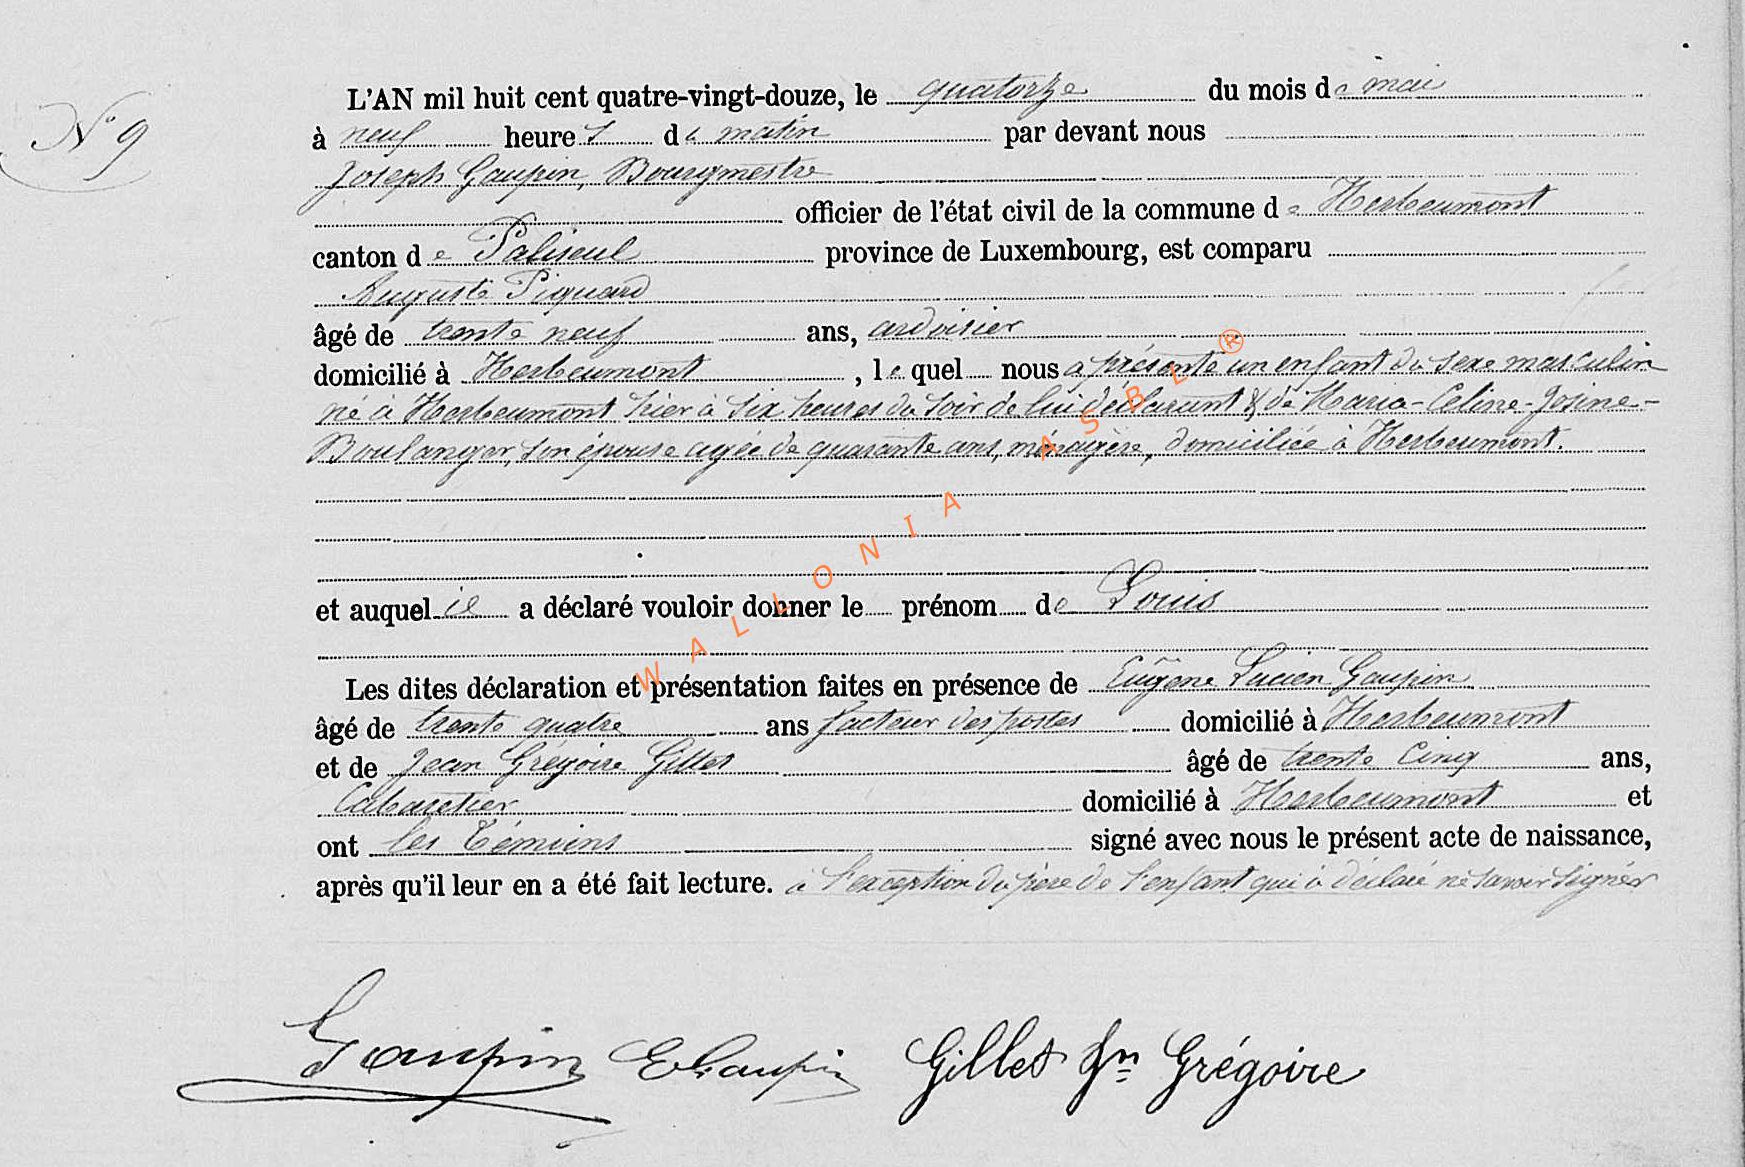 N° 9
L'AN mil huit cent quatre-vingt-douze, le quatorze du mois de mai
à neuf heures du matin par devant nous
Joseph Gaupin, Bourgmestre
officier de l'état civil de la commune de Herbeumont
canton de Paliseul province de Luxembourg, est comparu
Auguste Piquard
âgé de trente neuf ans, ardoisier
domicilié à Herbeumont, lequel nous a présenté un enfant du sexe masculin
né à Herbeumont hier à six heures du soir de lui déclarant & de Maria-Celine-Josine-
Boulanger, son épouse agée de quarante ans, ménagère, domiciliée à Herbeumont.
et auquel il a déclaré vouloir donner le prénom de Louis
Les dites déclaration et présentation faites en présence de Eugène Lucien Gaupin
âgé de trente quatre ans facteur des postes domicilié à Herbeumont
et de Jean Grégoire Gilles âgé de trente cinq ans,
Cabaretier domicilié à Herbeumont et
ont les témoins signé avec nous le présent acte de naissance,
après qu'il leur en a été fait lecture. à l'exception du père de l'enfant qui à déclaré ne savoir signer
Gaupin E Gaupin Gilles Jn Grégoire
WALLONIA ASBL ®